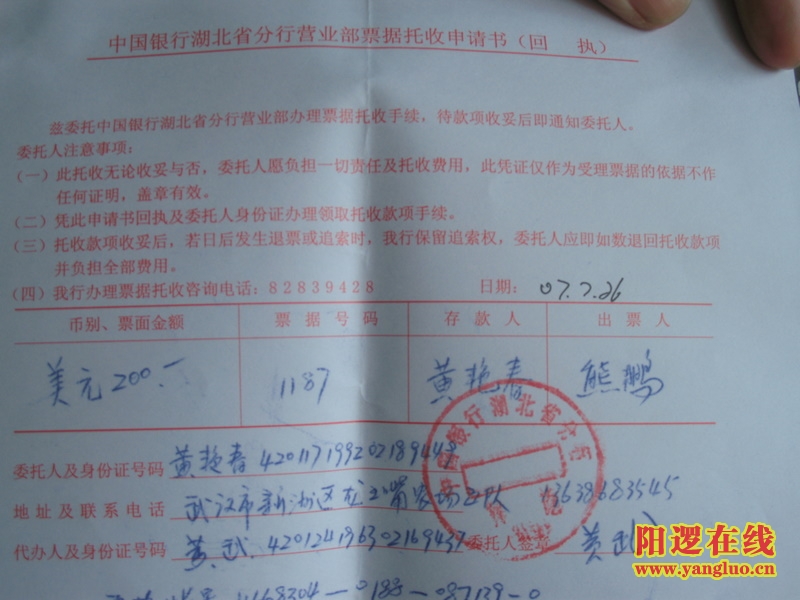 中国银行湖北省分行营业部票据托收申请书（回 执）
兹委托中国银行湖北省分行营业部办理票据托收手续，待款项收妥后即通知委托人。
委托人注意事项：
（一）此托收无论收妥与否，委托人愿负担一切责任及托收费用，此凭证仅作为受理票据的依据不作
任何证明，盖章有效。
（二）凭此申请书回执及委托人身份证办理领取托收款项手续。
（三）托收款项收妥后，若日后发生退票或追索时，我行保留追索权，委托人应即如数退回托收款项
并负担全部费用。
（四）我行办理票据托收咨询电话：82839428 日期：07.7.26
币别、票面金额 票据号码 存款人 出票人
美元200.— 1187 黄艳春 熊鹏
中国银行湖北省分行
委托人及身份证号码 黄艳春 420117199202189448
地址及联系电话 武汉市新洲区 13638683545
代办人及身份证号码 黄武 420124196302169439 委托人签章 黄武
4168304—0188—087139—0
阳逻在线
www.yangluo.cn